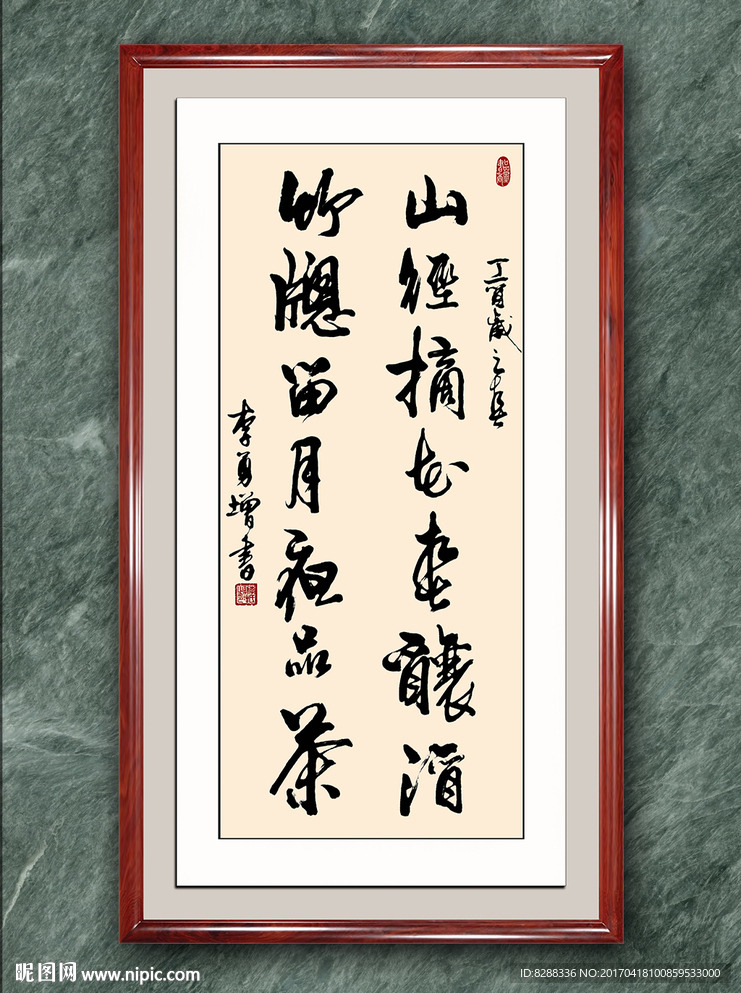 丁酉歲之春
山徑摘花春釀酒
竹牕留月夜品茶
李勇增書
昵图网 www.nipic.com
ID:8288336 NO:20170418100859533000